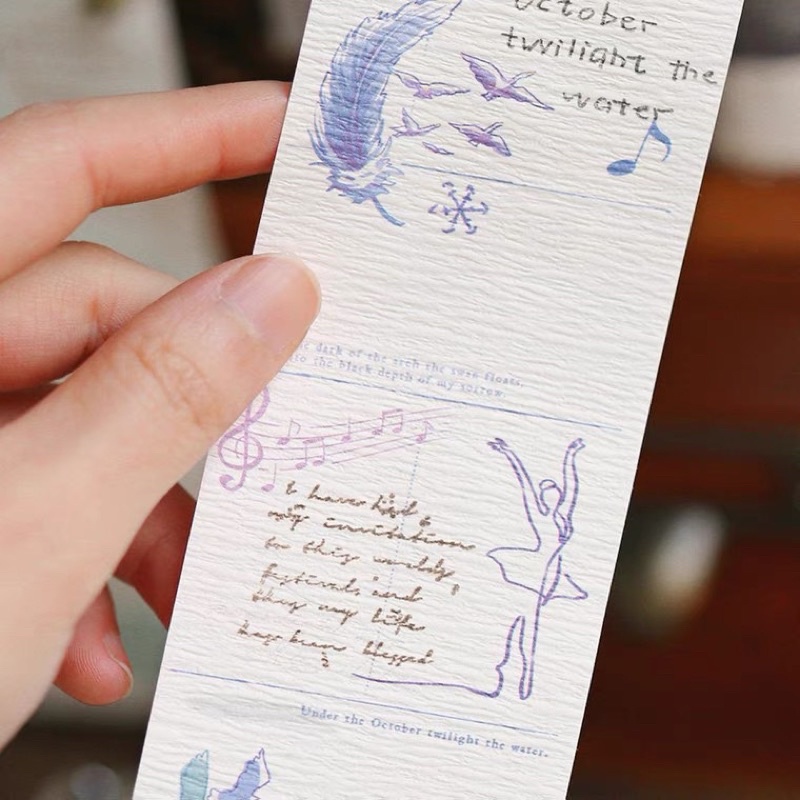 October
twilight the
water
dark of the arch the swan floats,
to the black depth of my sorrow.
I have had
my invitation
to this world's
festival, and
thus my life
has been blessed
Under the October twilight the water.